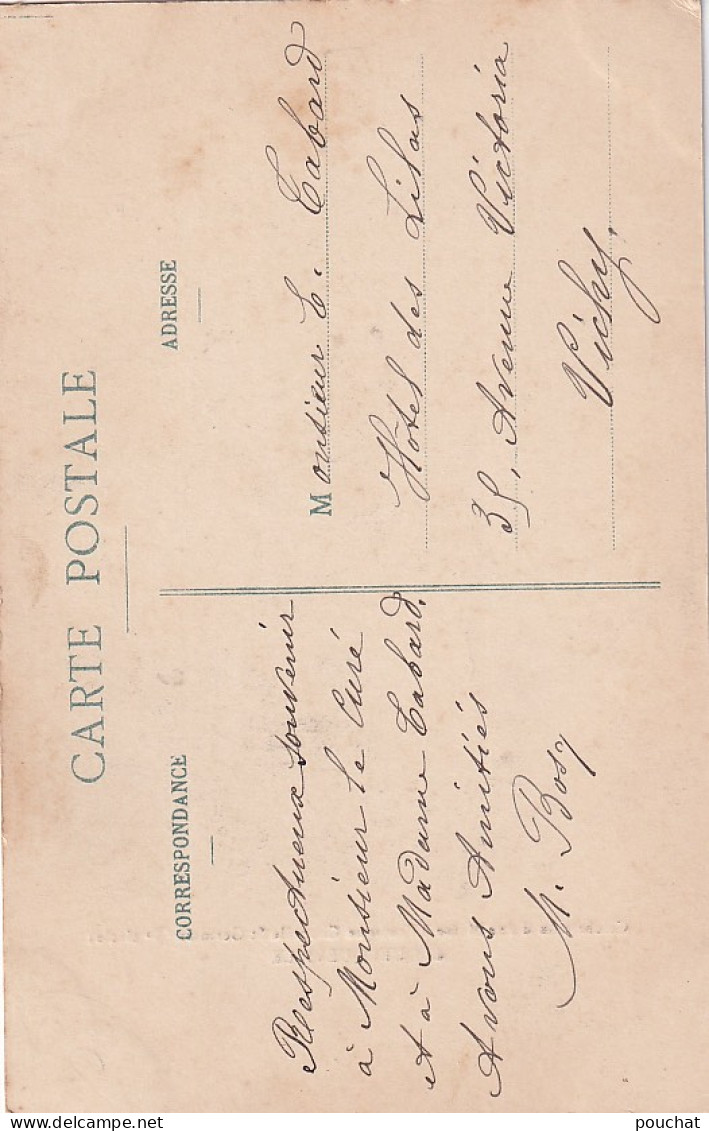 CARTE POSTALE
CORRESPONDANCE
Respectueux souvenir
à Monsieur le Curé
et à Madame Tabard.
A vous Amitiés
M. Bosy
ADRESSE
Monsieur E. Tabard
Hôtel des Lilas
35, Avenue Victoria
Vichy.
pouchat